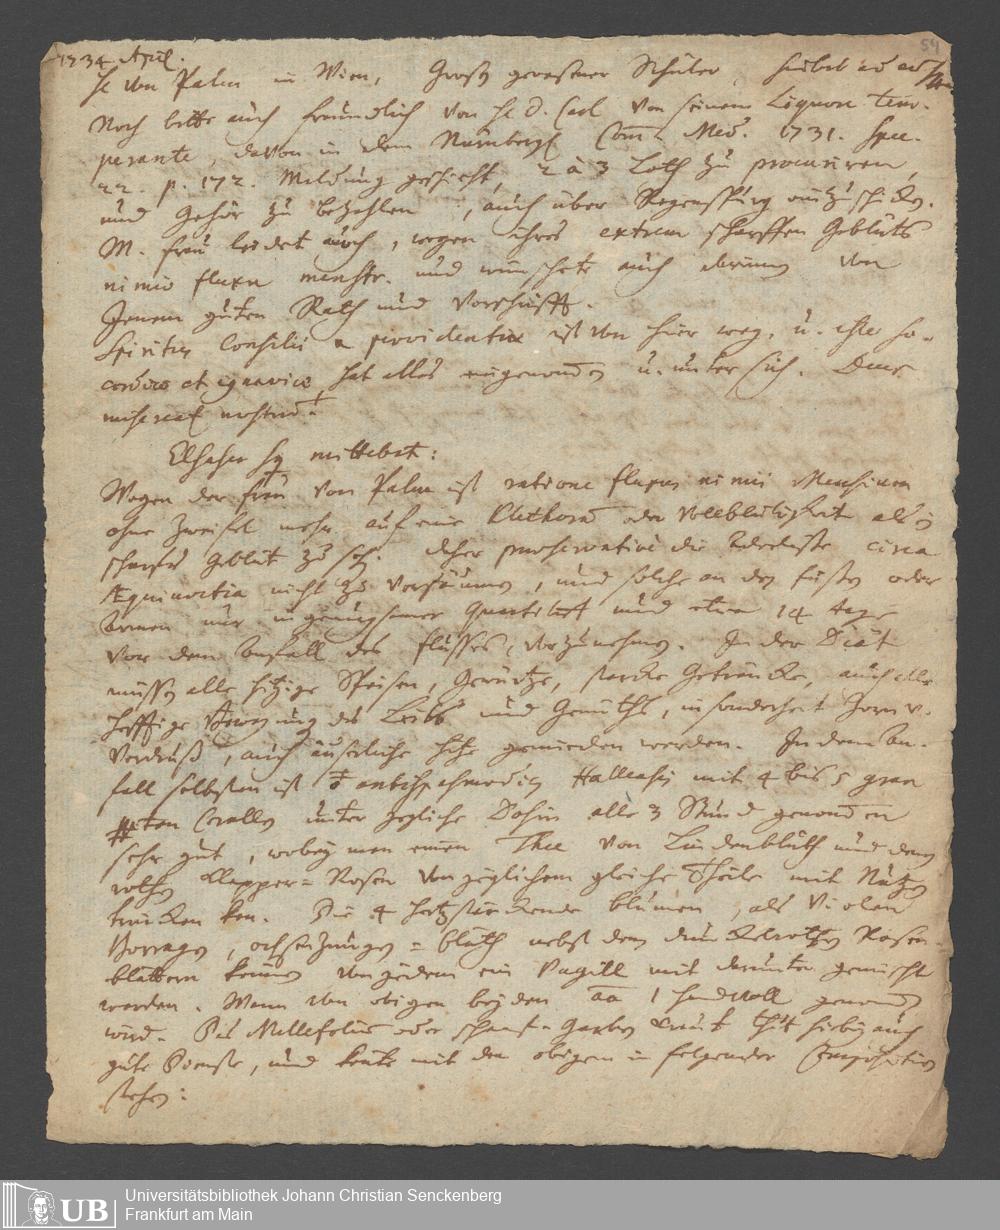 54
1734 April.
H. von Palm in Wien, Groß gewesener Schüler
Noch bitte auch freundlich von H. D. Carl von seinem Liquore tem-
perante, davon in dem Nürnberg. Com. Med. 1731. Spec.
22. p. 172. Meldung geschicht, 2 à 3 Loth zu procuriren,
und gehör zu bezahlen, auch über Regenspurg
M. Frau leidet auch, wegen ihres extrem scharffen Geblüts
nimio fluxu menstr. und wünschete auch von
Jenem guten Rath und Vorschrifft.
Spiritus Consilii & providentiae ist von hier weg, u. so-
cordiae et ignaviae hat alles eingenommen u. unter sich. Deus
misereat nostrum
mittebat:
Wegen der Frau von Palm ist ratione fluxus nimii Mensium
ohne Zweifel mehr auf eine Plethoram oder Vollblütigkeit als
scharfes Geblüt zu seh. daher praeservative die Aderlässe circa
Æquinoctia nicht zu versäumen, und solche an den Füßen oder
Armen nur in genugsamer Quantitæt und etwa 14 tage
vor dem Anfall des Flusses, vorzunehmen. In der Diät
müssen alle hitzige Speisen, Gewürtze, starcke Geträncke, auch alle
hefftige Bewegung des Leibs und Gemüths, insonderheit Zorn u.
Verdruß, auch äuserliche Hitze gemieden werden. In dem An-
fall selbsten ist antispasmodic. Hallens. mit 4 bis 5 gran
Corallen unter jegliche Dosin alle 3 Stund genommen
sehr gut, wobey man einen Thee von Lindenblüth und den
rothen Klapper-Rosen von jeglichem gleiche Theile mit Nutzen
trincken kan. Die 4 hertzstärckende blumen, als Violen
Borragen, ochsenzungen-blüth nebst den dunckelrothen Rosen-
blättern können von jedem ein Pugill mit darunter gemischt
werden. Wann von obigen beyden aa 1 Handvoll genommen
wird. Das Millefolium oder schaaf-Garben Kraut thut hierbey auch
gute Dienste, und könte mit den obigen in folgender Composition
stehen:
UB
Universitätsbibliothek Johann Christian Senckenberg
Frankfurt am Main